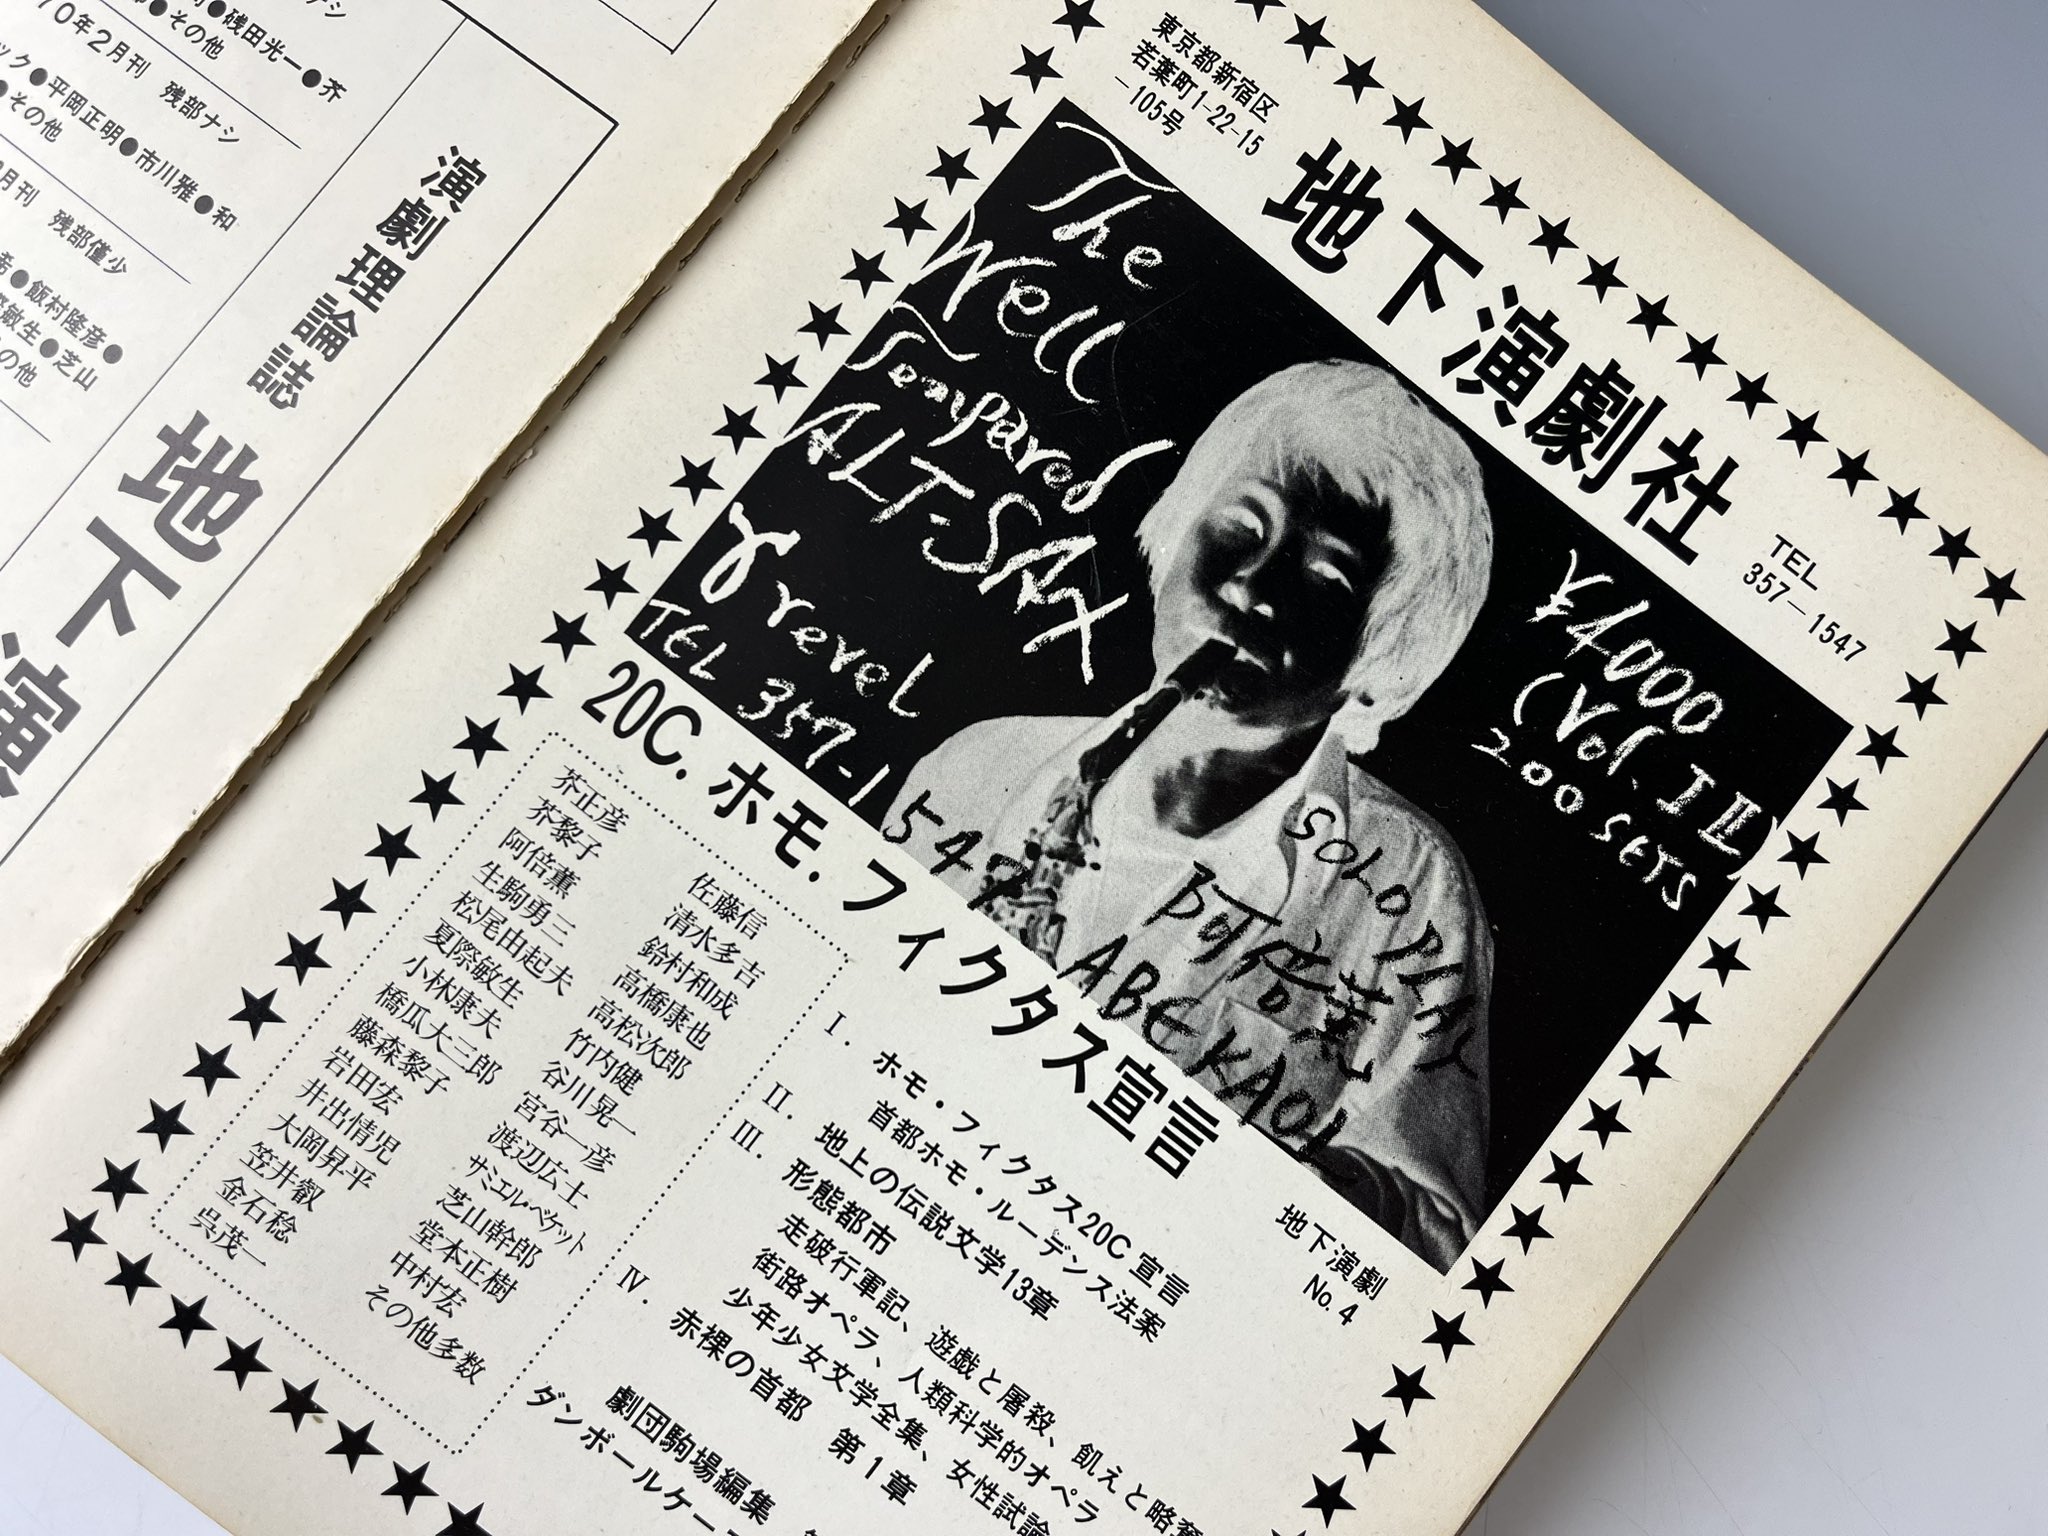 残部ナシ
硲田光一●芥
●その他
70年2月刊 残部ナシ
ック●平岡正明●市川雅●和
●その他
月刊 残部僅少
希●飯村隆彦●
際敏生●芝山
の他
演劇理論誌
地下演
東京都新宿区
若葉町1-22-15
−105号
地下演劇社
TEL
357−1547
The
Well
Tempared
ALT-SAX
revel
TEL 357-1547
¥4000
(Vol. I II)
200 SETS
SOLO PLAY
阿倍薫
ABE KAOL
20C.ホモ.フィクタス宣言
地下演劇
No.4
芥正彦
芥黎子
阿倍薫
生駒勇三
松尾由起夫
夏際敏生
小林康夫
橋瓜大三郎
藤森黎子
岩田宏
井出情児
大岡昇平
笠井叡
金石稔
呉茂一
佐藤信
清水多吉
鈴村和成
高橋康也
高松次郎
竹内健
谷川晃一
宮谷一彦
渡辺広士
サミエル・ベケット
芝山幹郎
堂本正樹
中村宏
その他多数
I.ホモ・フィクタス20C宣言
首都ホモ・ルーデンス法案
II.地上の伝説文学13章
III.形態都市
走破行軍記、遊戯と屠殺、飢えと略奪
街路オペラ、人類科学的オペラ
少年少女文学全集、女性試論
IV.赤裸の首都 第1章
劇団駒場編集
ダンボールケー